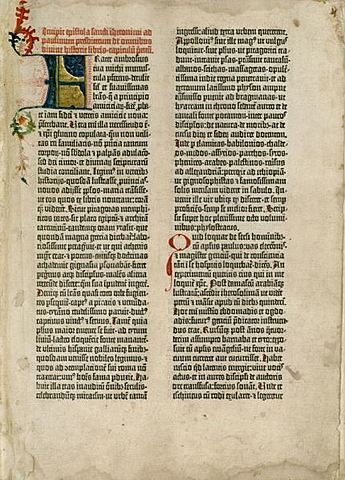 Incipit epistola sancti iheronimi ad
paulinum presbiterum de omnibus
divine historie libris· capitulū p̄mū.
Frater ambrosius
tua michi munus-
cula perferens· detulit
sil et suavissimas
lrās· q̄ a principio
amiciciar· fidē p̄ba-
te iam fidei et veteris amicicie nova:
preferebant. Vera enī illa necessitudo ē·
et xpī glutino copulata· q̄m non utili-
tas rei familiaris· nō p̄ncia tantum
corporū· nō subdola et palpās adulacō·
sed dei timor· et divinarū scripturarū
studia conciliant. Legim⁹ in veteribus
historiis· quosdā lustrasse p̄vincias·
novos adiisse ipsos· maria trāsisse·
ut eos quos ex libris noverant: corā
q̄ viderēt. Sicut pitagoras memphi-
ticos vates· sic plato egiptū· et architā
tarentinū· eandemq̄ oram ytalie· que
quondā magna grecia dicebat̄: labo-
riosissime peragravit: et ut qui athenis
mgr̄ erat· et potens· cuiusq̄ doctrinas
achademie gignasia p̄sonabāt· fieret
peregrin⁹ atq̄ discipulus· malēs aliena
verecunde discere: q̄m sua īpudent̄ ingerere.
Deniq̄ cū lrās quasi toto orbe fugien-
tes p̄sequit̄· capt⁹ a piratis et venūda-
tus· tyrāno crudelissimo paruit: duct⁹
captivus vinct⁹ et servus. Tamē quia
phus maior emente se fuit: ad tytum
livium· lacteo eloquēcie fonte manantem·
de ultimis hispanie galliarūq̄ finib⁹·
quosdam venisse nobiles legimus: et
quos ad cōtemplacōnē sui roma nō
traxerat: uni⁹ hoīs fama p̄duxit. Ha-
buit illa etas inauditū omib⁹ seculis·
celebrandūq̄ miraculum: ut urbē tantā
ingressi· aliud extra urbem quererent.
Appolloni⁹ sive ille mag⁹ ut vulgus
loquitur· sive phūs· ut pitagorici tra-
dunt· intravit psas· p̄transivit caucasū·
albanos· scithas· massagetas· opulē-
tissima indie regna penetravit: et ad
extremum latissimo physon amne
trāsmisso puenit ad bragmanas: ut
hyarcam in throno sedentē aureo et de
tantali fonte potantem· inter paucos
discipulos· de natura· de moribs· ac de
cursu dierū et siderū audiret docentem.
Inde p elamitas· babilonios· chalde-
os· medos· assyrios· parthos· syros·
phenices· arabes· palestinos· reversus
ad alexandriā: perrexit ad ethiopiā·
ut gignosophistas et famosissimam
solis mensam videret in sabulo. In-
venit ille vir ubiq̄ qd disceret: et semp
proficiens· semp se melior fieret. Scrip-
sit super hoc plenissime octo volumi-
nibus· phylostratus.
Quid loquar de seculi hominib⁹:
cū apl̄us paulus· vas electōnis·
et magister gencium· qui de conscientia
tanti ī se hospitis loquebat̄ dicēs. An
experimentum queritis eius qui in me
loquit̄ cristus. Post damascū arabiāq̄
lustratā: ascēdit iherosolimā ut videret
petrū et mansit apud eū dieb⁹ quindeci.
Hoc enī misterio ebdomadis et ogdo-
adis: futur⁹ genciū p̄dicator instruen-
dus erat. Rursūq̄ post ānos quatuor-
decim assumpto barnaba et tyto: expo-
suit cū aplis evāgeliū· ne forte in va-
cuum curreret aut cucurrisset. Habet
nescio qd latentis energie vive vocis
actus· et in aures discipli de auctoris
ore transfusa: forcius sonat. Unde et
eschineus cū rodi exularet· et legeretur